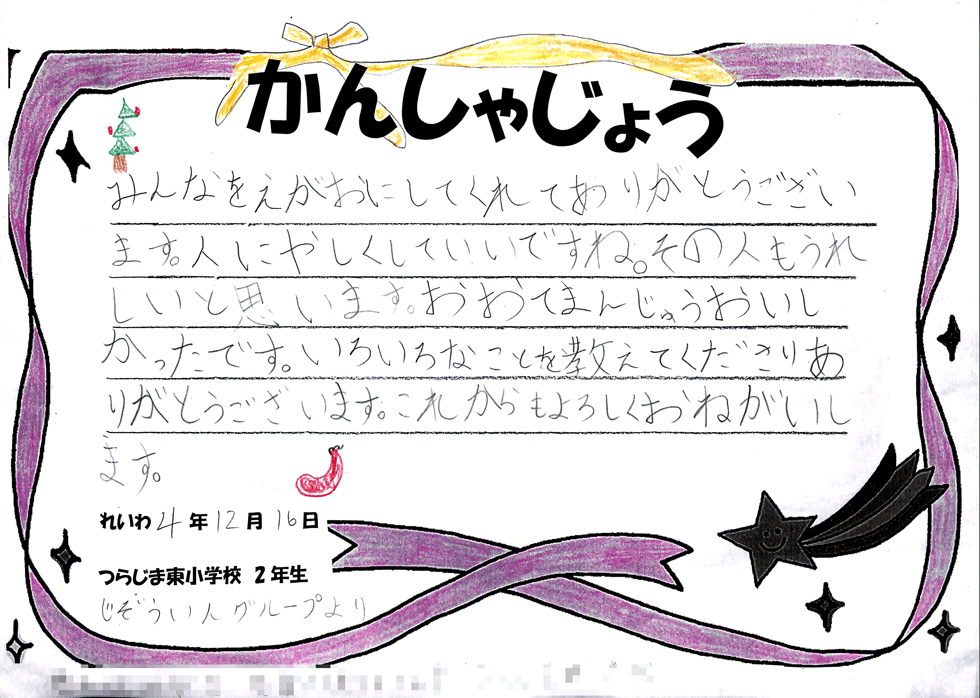 かんしゃじょう
みんなをえがおにしてくれてありがとうござい
ます。人にやしくしていいですね。その人もうれ
しいと思います。おおてまんじゅうおいし
かったです。いろいろなことを教えてくださりあ
りがとうございます。これからもよろしくおねがいし
ます。
れいわ4年12月16日
つらじま東小学校 2年生
じぞういんグループより